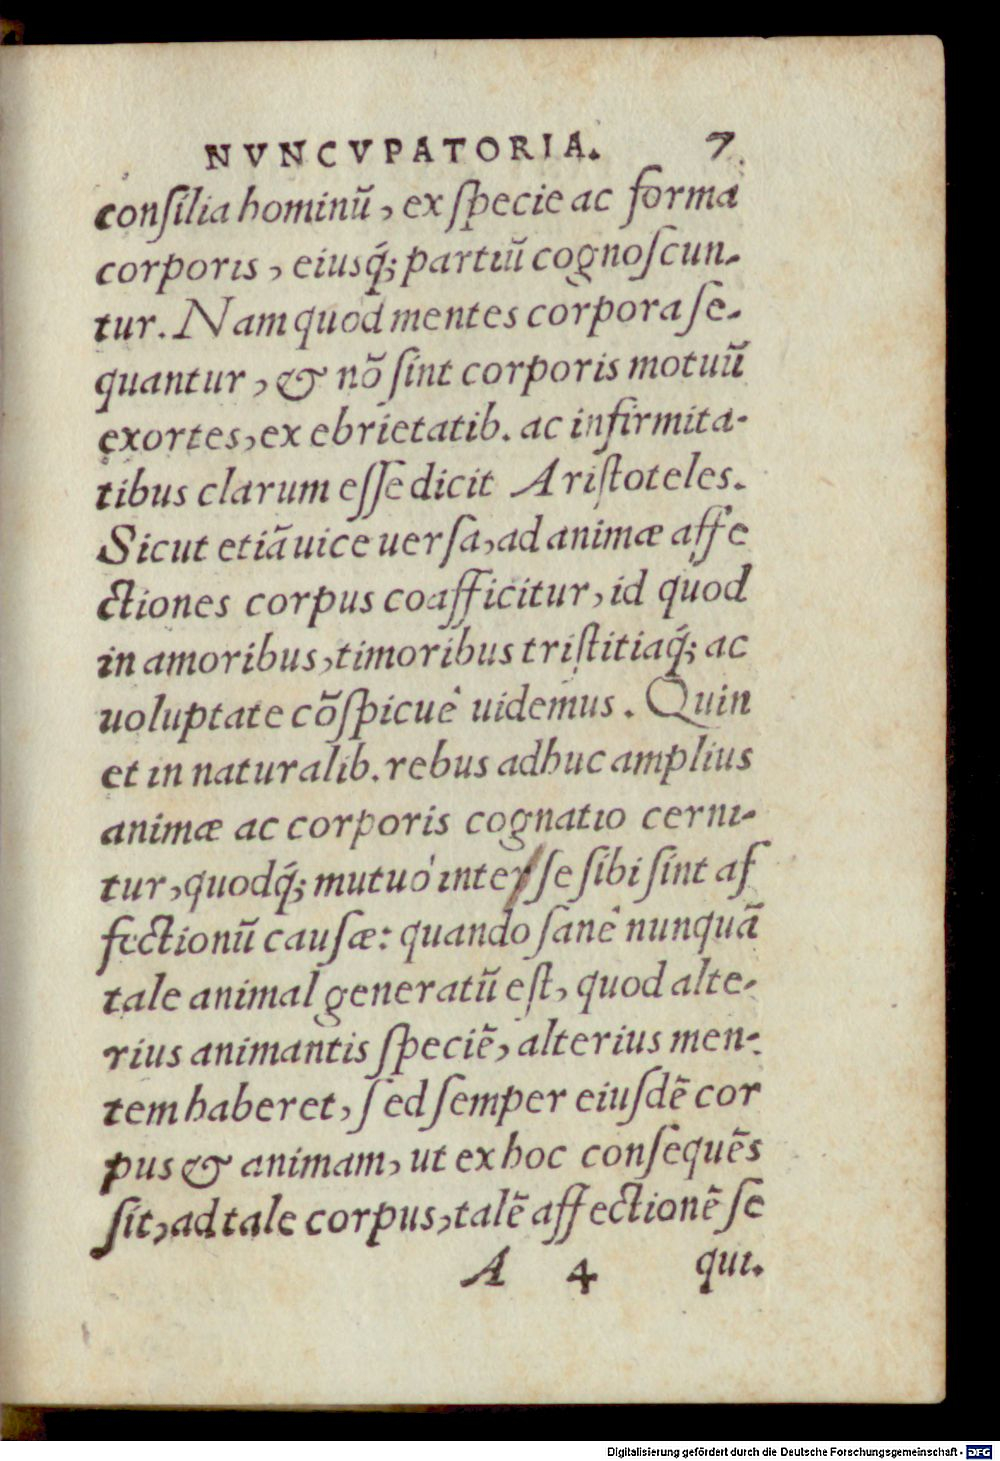 NVNCVPATORIA. 7
conſilia hominũ, ex ſpecie ac forma
corporis, eiusq́; partiũ cognoſcun-
tur. Nam quod mentes corpora ſe-
quantur, & nõ ſint corporis motuũ
exortes, ex ebrietatib. ac infirmita-
tibus clarum eſſe dicit Ariſtoteles.
Sicut etiã uice uerſa, ad animæ affe
ctiones corpus coafficitur, id quod
in amoribus, timoribus triſtitiaq́; ac
uoluptate cõſpicuè uidemus. Quin
et in naturalib. rebus adhuc amplius
animæ ac corporis cognatio cerni-
tur, quodq́; mutuò inter ſe ſibi ſint af
fectionũ cauſæ: quando ſanè nunquã
tale animal generatũ eſt, quod alte-
rius animantis ſpeciẽ, alterius men-
tem haberet, ſed ſemper eiuſdẽ cor
pus & animam, ut ex hoc conſequẽs
ſit, ad tale corpus, talẽ affectionẽ ſe
A 4 qui.
Digitalisierung gefördert durch die Deutsche Forschungsgemeinschaft - DFG